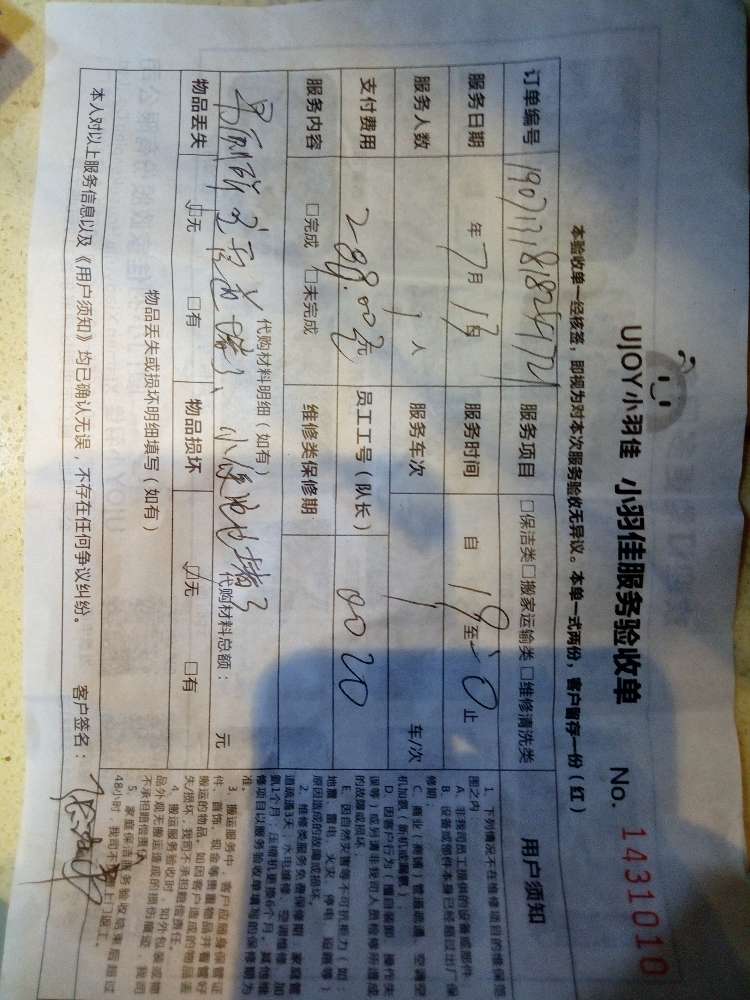 UJOY小羽佳 小羽佳服务验收单 No. 1431010
本验收单一经核签，即视为对本次服务验收无异议。本单一式两份，客户留存一份（红）
订单编号 服务项目 □保洁类□搬家运输类□维修清洗类
服务日期 年 7月 13日 服务时间 自 19 至 20 止
服务人数 1 人 服务车次 车/次
支付费用 288.00元 员工工号（队长） 0020
服务内容 □完成 □未完成 维修类保修期
代购材料明细（如有） 代购材料总额： 元
物品丢失 ☑无 □有 物品损坏 ☑无 □有
物品丢失或损坏明细填写（如有）
本人对以上服务信息以及《用户须知》均已确认无误，不存在任何争议纠纷。 客户签名：
用户须知
1、下列情况不在维修项目的维保范
围之内：
A、非我司员工提供的设备或部件
B、设备或部件本身已经超过出厂保
修期；
C、商业（商铺）管道疏通、空调空
D、因客户行为（擅自装卸、操作失
误等）或另请非我司人员检修所造成
的故障或损坏
E、因自然灾害等不可抗拒力（如：
地震、雷电、火灾、停电、短路等）
原因造成的故障或损坏。
2、维修类服务免费保修期：家庭管
道疏通3天，水电维修、空调维修、加
氨1个月，压缩机更换6个月，其他维
修项目以服务验收单填写的保修期为
准。
3、搬运服务中，客户应随身保管证
件、首饰、现金等贵重物品并看管好
搬运的物品，如因客户造成的物品丢
失/损坏，我司不承担赔偿责任。
4、搬运服务验收时，如外包装或物
品外观无搬运造成的损伤痕迹，我司
不承担赔偿责任。
5、家庭保洁服务验收结束后超过
48小时，我司不 上门返工。